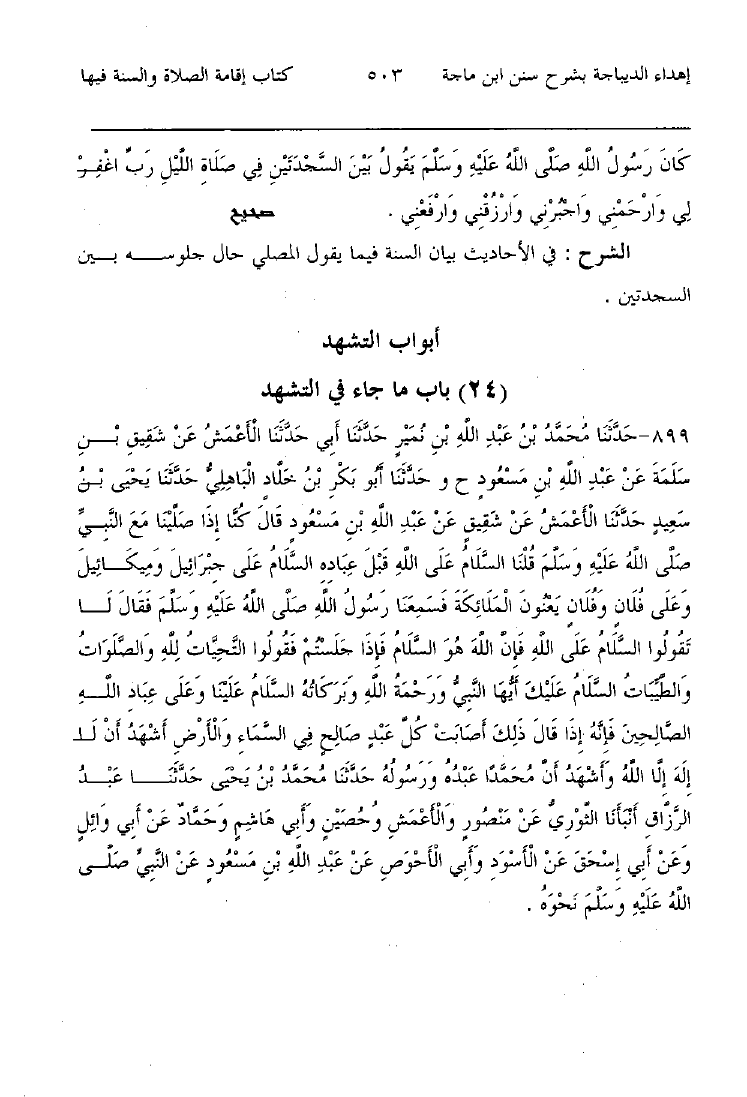 إهداء الديباجة بشرح سنن ابن ماجة ٥٠٣ كتاب إقامة الصلاة والسنة فيها
كَانَ رَسُولُ اللهِ صَلَّى اللهُ عَلَيْهِ وَسَلَّمَ يَقُولُ بَيْنَ السَّجْدَتَيْنِ فِي صَلَاةِ اللَّيْلِ رَبِّ اغْفِرْ
لِي وَارْحَمْنِي وَاجْبُرْنِي وَارْزُقْنِي وَارْفَعْنِي . صحيح
الشرح : في الأحاديث بيان السنة فيما يقول المصلي حال جلوسه بين
السجدتين .
أبواب التشهد
(٢٤) باب ما جاء في التشهد
٨٩٩-حَدَّثَنَا مُحَمَّدُ بْنُ عَبْدِ اللهِ بْنِ نُمَيْرٍ حَدَّثَنَا أَبِي حَدَّثَنَا الْأَعْمَشُ عَنْ شَقِيقِ بْنِ
سَلَمَةَ عَنْ عَبْدِ اللهِ بْنِ مَسْعُودٍ ح و حَدَّثَنَا أَبُو بَكْرِ بْنُ خَلَّادٍ الْبَاهِلِيُّ حَدَّثَنَا يَحْيَى بْنُ
سَعِيدٍ حَدَّثَنَا الْأَعْمَشُ عَنْ شَقِيقٍ عَنْ عَبْدِ اللهِ بْنِ مَسْعُودٍ قَالَ كُنَّا إِذَا صَلَّيْنَا مَعَ النَّبِيِّ
صَلَّى اللهُ عَلَيْهِ وَسَلَّمَ قُلْنَا السَّلَامُ عَلَى اللهِ قَبْلَ عِبَادِهِ السَّلَامُ عَلَى جِبْرَائِيلَ وَمِيكَائِيلَ
وَعَلَى فُلَانٍ وَفُلَانٍ يَعْنُونَ الْمَلَائِكَةَ فَسَمِعَنَا رَسُولُ اللهِ صَلَّى اللهُ عَلَيْهِ وَسَلَّمَ فَقَالَ لَا
تَقُولُوا السَّلَامُ عَلَى اللهِ فَإِنَّ اللهَ هُوَ السَّلَامُ فَإِذَا جَلَسْتُمْ فَقُولُوا التَّحِيَّاتُ لِلَّهِ وَالصَّلَوَاتُ
وَالطَّيِّبَاتُ السَّلَامُ عَلَيْكَ أَيُّهَا النَّبِيُّ وَرَحْمَةُ اللهِ وَبَرَكَاتُهُ السَّلَامُ عَلَيْنَا وَعَلَى عِبَادِ اللهِ
الصَّالِحِينَ فَإِنَّهُ إِذَا قَالَ ذَلِكَ أَصَابَتْ كُلَّ عَبْدٍ صَالِحٍ فِي السَّمَاءِ وَالْأَرْضِ أَشْهَدُ أَنْ لَا
إِلَهَ إِلَّا اللهُ وَأَشْهَدُ أَنَّ مُحَمَّدًا عَبْدُهُ وَرَسُولُهُ حَدَّثَنَا مُحَمَّدُ بْنُ يَحْيَى حَدَّثَنَا عَبْدُ
الرَّزَّاقِ أَنْبَأَنَا الثَّوْرِيُّ عَنْ مَنْصُورٍ وَالْأَعْمَشِ وَحُصَيْنٍ وَأَبِي هَاشِمٍ وَحَمَّادٌ عَنْ أَبِي وَائِلٍ
وَعَنْ أَبِي إِسْحَقَ عَنْ الْأَسْوَدِ وَأَبِي الْأَحْوَصِ عَنْ عَبْدِ اللهِ بْنِ مَسْعُودٍ عَنْ النَّبِيِّ صَلَّى
اللهُ عَلَيْهِ وَسَلَّمَ نَحْوَهُ .